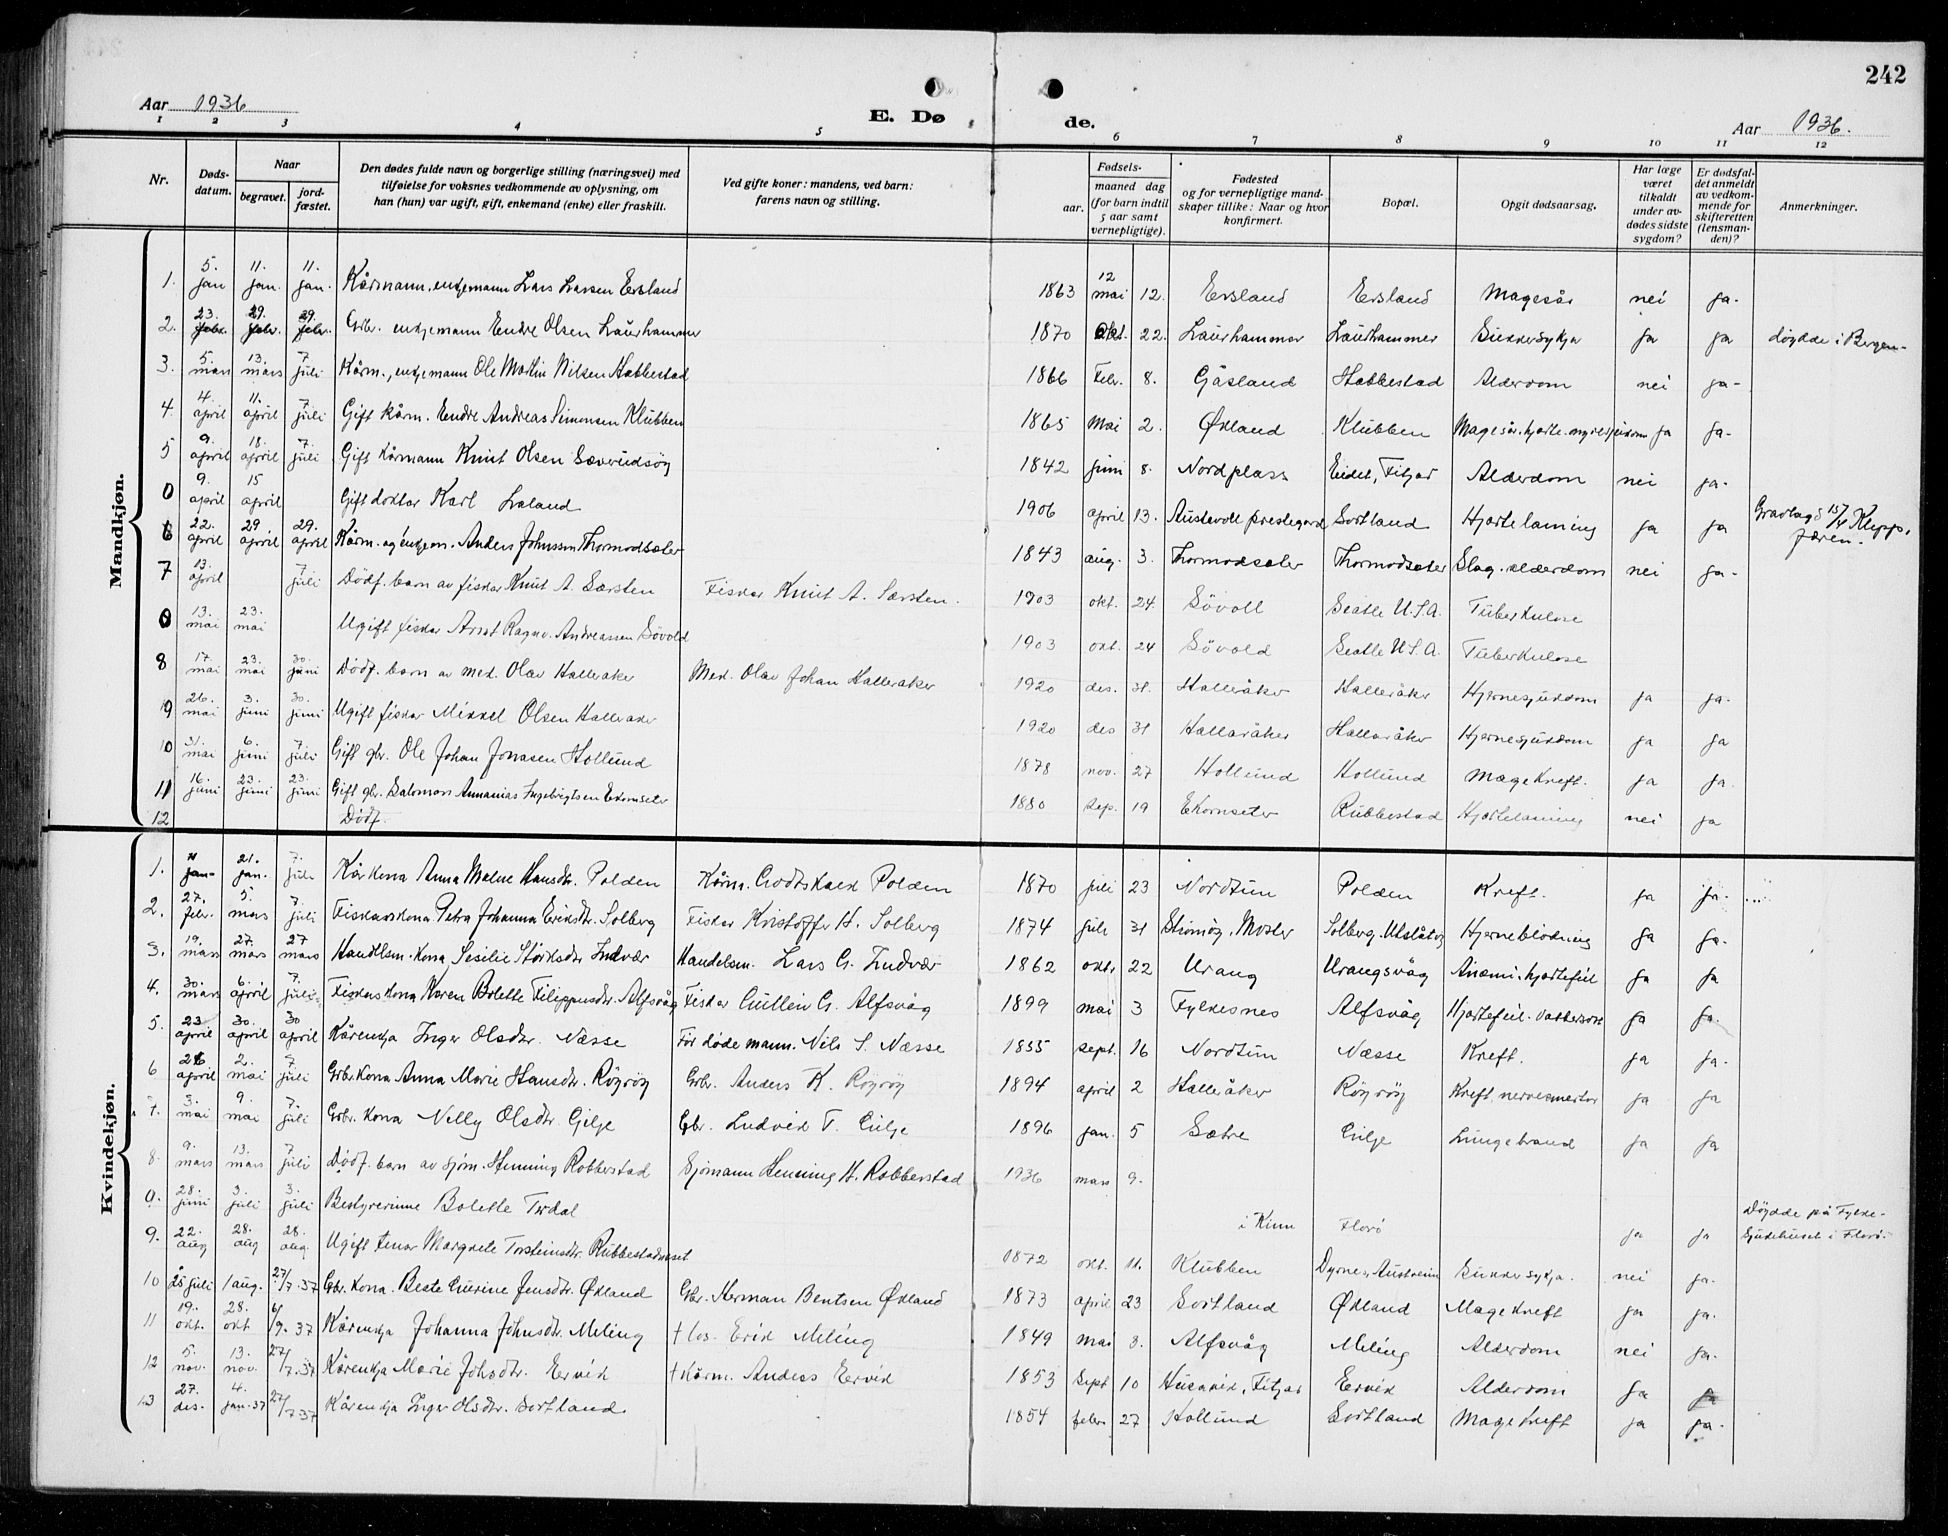 242
Aar 1936
E. Dø
de.
Aar 1936.
1 2 3 4 5 6 7 8 9 10 11 12
Nr.
Døds-datum.
Naar
begravet.
jord-fæstet.
Den dødes fulde navn og borgerlige stilling (næringsvei) med
tilføielse for voksnes vedkommende av oplysning, om
han (hun) var ugift, gift, enkemand (enke) eller fraskilt.
Ved gifte koner: mandens, ved barn:
farens navn og stilling.
Fødsels-
aar.
maaned dag
(for barn indtil
5 aar samt
vernepligtige).
Fødested
og for vernepligtige mand-
skaper tillike: Naar og hvor
konfirmert.
Bopæl.
Opgit dødsaarsag.
Har læge
været
tilkaldt
under av-
dødes sidste
sygdom?
Er dødsfal-
det anmeldt
av vedkom-
mende for
skifteretten
(lensman-
den)?
Anmerkninger.
Mandkjøn.
1. 5. jan 11. jan. 11. jan. Kårmann, enkjemann Lars Larsen Ersland 1863 12 mai 12. Ersland Ersland Magesår nei ja.
2. 23. febr. 29. febr. 29. febr. Grbr. enkjemann Endre Olsen Laurhammer 1870 Okt. 22. Laurhammer Laurhammer Sukkersykja ja ja døydde i Bergen
3. 5. mars 13. mars 7. juli Kårm., enkjemann Ole Martin Nilsen Habbestad 1866 Febr. 8. Gåsland Habbestad Alderdom nei ja-
4. 4. april 11. april 7 juli Gift kårm. Endre Andreas Simonsen Klubben 1865 Mai 2. Økland Klubben Magesår, hjarte. ja ja-
5 9. april 18. april 7. juli Gift Kårmann Knut Olsen Sæverudsøy 1842 juni 8. Nordplass Eidet, Fitjar Alderdom nei ja-
0 9. april 15 april Gift doktar Karl Laland 1906 april 13. Austevoll prestegard Sortland Hjartelaming ja ja Gravlagd 15/4 Klepp, Jæren.
6 22. april 29. april 29. april Kårm. og enkjem. Anders Johnsson Thormodsæter 1843 aug. 3. Thormodsæter Thormodsæter Slag. alderdom nei ja-
7 13. april 7 juli Dødf. barn av fiskar Knut A. Sørsten Fiskar Knut A. Sørsten. 1903 okt. 24. Søvoll Seatle U.S.A. Tuberkulose
0 13. mai 23. mai Ugift fiskar Arnt Ragnv. Andreassen Søvold 1903 okt. 24 Søvold Seatle U.S.A. Tuberkulose
8 17. mai 23. mai 30. juni Dødf. barn av med. Olav Halleraker Med. Olav Johan Halleraker 1920 des. 31. Halleråker Halleråker Hjernesjukdom ja ja-
9 26. mai 3. juni 30. juni Ugift fiskar Mikkel Olsen Halleraker 1920 des 31 Halleråker Halleråker Hjernesjukdom ja ja
10 31. mai 6. juni 7. juli Gift gbr. Ole Johan Jonasen Hollund 1878 nov. 27 Hollund Hollund Magekreft. ja ja.
11 16. juni 23. juni 23. juni Gift gbr. Salomon Annanias Ingebrigtsen Ekornseter 1880 sep. 19 Ekornseter Rubbestad Hjartelaming nei ja
12 Dødf.
Kvindekjøn.
1. jan- 21. jan. 7. juli Kårkona Anna Malne Hansdtr. Polden Kårm. Godtskalk Polden 1870 juli 23 Nordtun Polden Kreft. ja ja-
2. 27. febr. 5 mars 7. juli Fiskarkona Petra Johanna Eriksdtr. Solberg Fiskar Kristoffer H. Solberg 1874 juli 31 Strømøy, Moster Solberg, Utslåtøy Hjerneblødning ja ja-
3. 19. mars 27. mars 27 mars Handelsm. kona Sesilie Størksdtr. Indvær Handelsm. Lars G. Indvær 1862 okt. 22 Urang Urangsvåg Anæmi. hjartefeil ja ja
4. 30. mars 6. april 7. juli Fiskarkona Karen Bolette Filippusdtr. Alfsvåg Fiskar Gutlein G. Alfsvåg 1899 mai 3 Fylkesnes Alfsvåg Hjartefeil. vattersott ja ja-
5. 23 april 30. april 30 april Kårenkja Inger Olsdtr. Næsse Før døde mann. Nils S. Næsse 1855 sept. 16 Nordtun Næsse Kreft. ja ja-
6 26 april 2. mai 7. juli Grbr.kona Anna Marie Hansdtr. Røyrøy Grbr. Anders K. Røyrøy 1894 april 2 Halleråker Røyrøy Kreft, nervesmertor ja ja
7. 3. mai 9. mai 7. juli Grbr. kona Nelly Olsdtr Gilje Gbr. Ludvik T. Gilje 1896 jan. 5 Sætre Gilje Lungebrand ja ja
8. 9. mars 13. mars 7 juli Dødf. barn av sjøm. Henning Robberstad Sjømann Henning H. Robberstad 1936 mars 9.
0. 28. juni 3. juli 3. juli Bestyrerinne Bolette Tirdal i Kinn Florø ja ja Døydde på Fylke-sjukehuset i Florø.
9. 22. aug 28. aug 28. aug. Ugift tenar Margrete Torsteinsdtr. Rubbestadneset 1872 okt. 11. Klubben Dyrnes, Austreim Sukkersykja. nei ja-
10 25 juli 1 aug. 27/7.37 Gbr. kona. Berte Gurine Jensdtr. Økland Gbr. Herman Bentsen Økland 1873 april 23 Sortland Økland Magekreft ja ja.
11 19. okt. 28. okt 6/9.37 Kårenkja Johanna Johnsdtr. Meling † los. Erik Meling 1849 mai 8. Alfsvåg Meling Alderdom nei ja-
12 5. nov. 13. nov. 27/7.37 Kårenkja Marie Johsdtr. Ervik † Kårm. Anders Ervik 1853 Sept 10 Husavik, Fitjar Ervik Alderdom ja ja
13 27. des. 4. jan.37 27/7 37 Kårenkja Inger Olsdtr. Sortland. 1854 febr. 27 Hollund Sortland Magekreft ja ja-